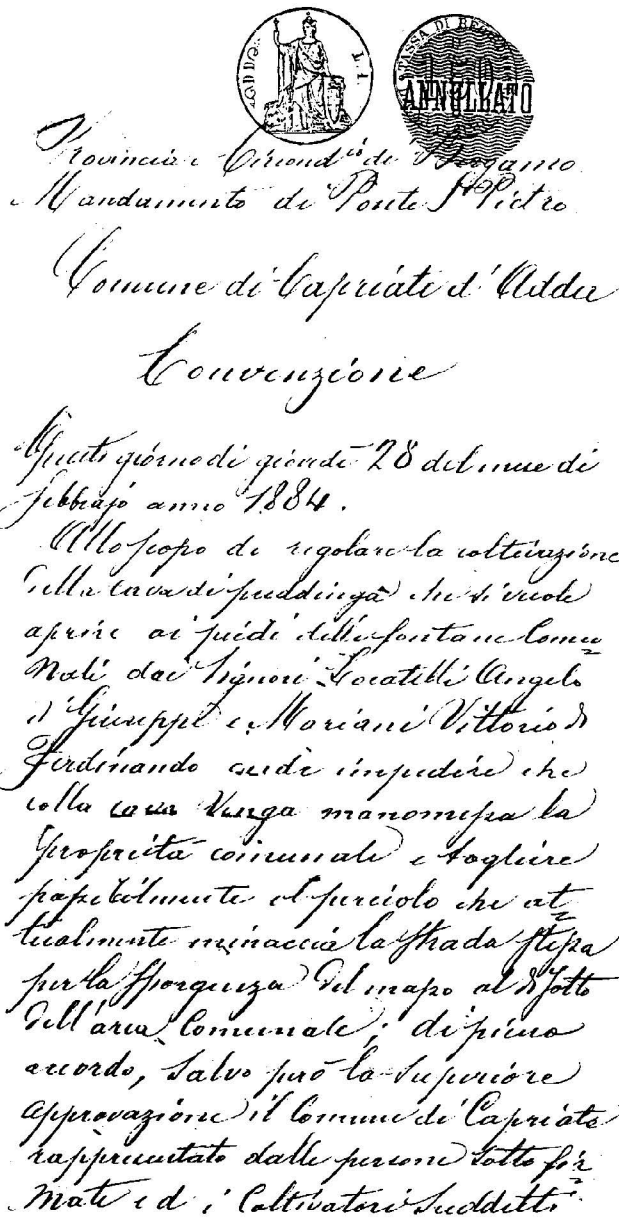 TASSA DI
ANNULLATO
Provincia e Circond.io di Bergamo
Mandamento di Ponte S. Pietro
Comune di Capriate d'Adda
Convenzione
Questo giorno di giovedì 28 del mese di
febbrajo anno 1884.
Allo scopo di regolare la coltivazione
della cava di puddinga che si vuole
aprire ai piedi delle fontane Comu=
nali dai Signori Locatelli Angelo
di Giuseppe e Mariani Vittorio di
Ferdinando onde impedire che
colla cava venga manomessa la
proprietà comunale e togliere
possibilmente il pericolo che at=
tualmente minaccia la strada stessa
per la sporgenza del masso al di sotto
dell'area Comunale; di pieno
accordo, salvo però la superiore
approvazione il Comune di Capriate
rappresentato dalle persone sotto fir=
mate ed i Coltivatori suddetti